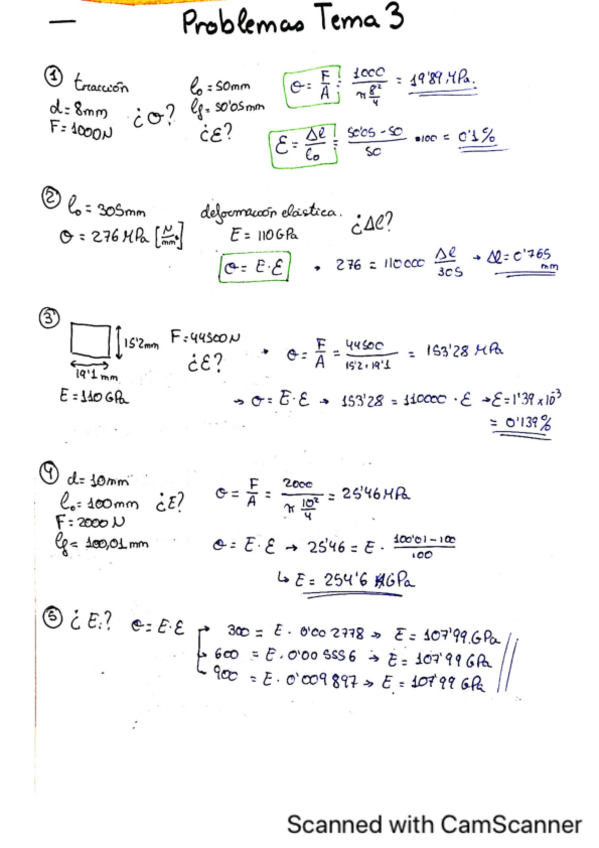 Problemas Tema 3
① tracción
d = 8mm
F = 1000N
¿σ?
l₀ = 50mm
lf = 50'05mm
¿ε?
σ = F/A = 1000/(π 8²/4) = 19'89 MPa.
ε = Δl/l₀ = (50'05 - 50)/50 · 100 = 0'1%
② l₀ = 305mm
σ = 276 MPa [N/mm²]
deformación elástica.
E = 110 GPa
¿Δl?
σ = E · ε → 276 = 110000 Δl/305 → Δl = 0'765 mm
③
15'2mm
19'1 mm
E = 110 GPa
F = 44500 N
¿ε?
→ σ = F/A = 44500/(15'2 · 19'1) = 153'28 MPa
→ σ = E · ε → 153'28 = 110000 · ε → ε = 1'39 x 10³
= 0'139%
④ d = 10mm
l₀ = 100mm ¿E?
F = 2000 N
lf = 100,01 mm
σ = F/A = 2000/(π 10²/4) = 25'46 MPa
σ = E · ε → 25'46 = E · (100'01 - 100)/100
↳ E = 254'6 GPa
⑤ ¿E? σ = E · ε
→ 300 = E · 0'002778 → E = 107'99 GPa
→ 600 = E · 0'005556 → E = 107'99 GPa
→ 900 = E · 0'009897 → E = 107'99 GPa
Scanned with CamScanner